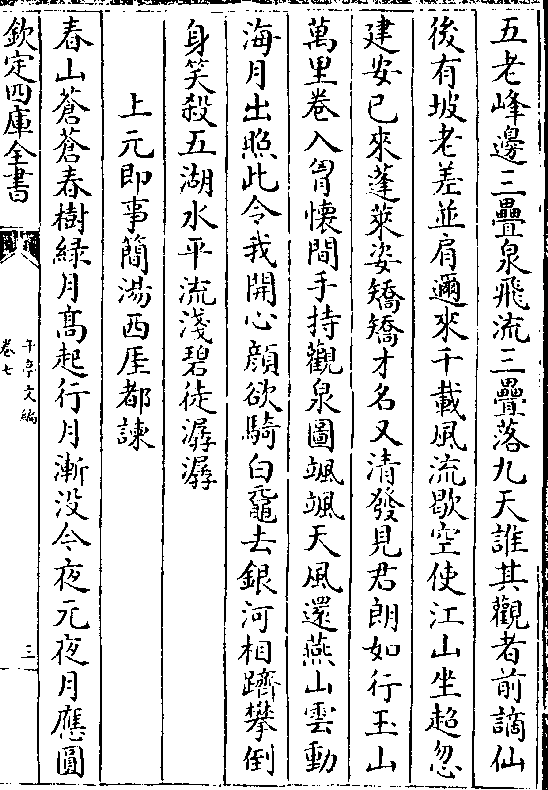 五老峰邊三疊泉飛流三疊落九天誰其觀者前謫仙
後有坡老差並肩邇來千載風流歇空使江山坐超忽
建安已來蓬萊姿矯矯才名又清發見君朗如行玉山
萬里卷入胷懷間手持觀泉圖颯颯天風還燕山雲動
海月出照此令我開心顔欲騎白黿去銀河相躋攀倒
身笑殺五湖水平流淺碧徒潺潺
上元即事簡湯西厓都諫
春山蒼蒼春樹緑月髙起行月漸没今夜元夜月應圓
欽定四庫全書
午亭文編
卷七
三